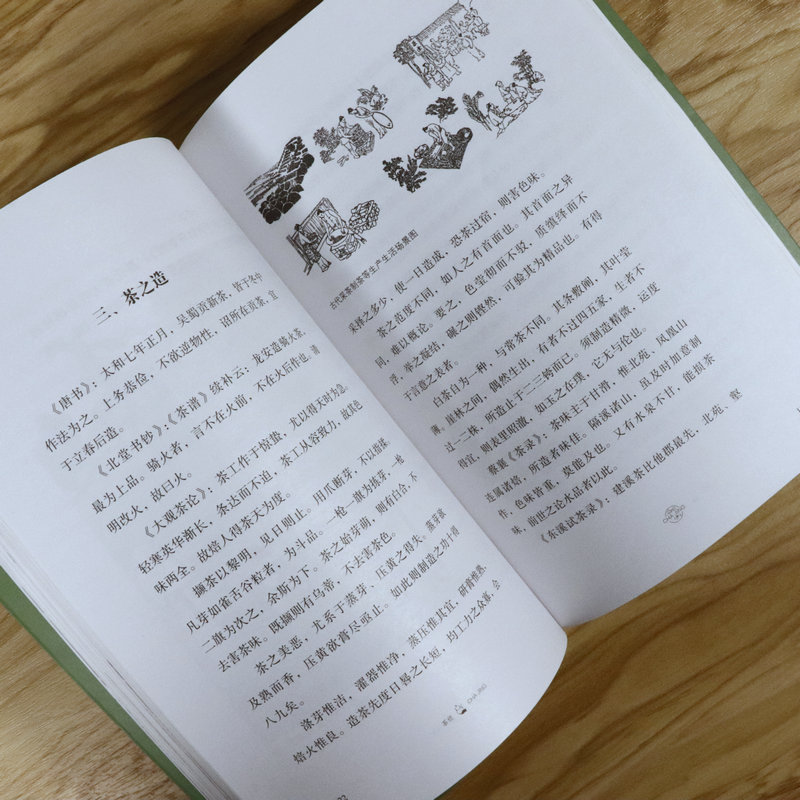 三、茶之造
《唐书》：太和七年正月，吴蜀贡新茶，皆于冬中
作法为之。上务恭俭，不欲逆物性，诏所在贡茶，宜
于立春后造。
《北堂书抄》：《茶谱》续补云：龙安造骑火茶，
最为上品。骑火者，言不在火前，不在火后作也。清
明改火，故曰火。
《大观茶论》：茶工作于惊蛰，尤以得天时为急。
轻寒英华渐长，条达而不迫，茶工从容致力，故其色
味两全。故焙人得茶天为度。
撷茶以黎明，见日则止。用爪断芽，不以指揉
凡芽如雀舌谷粒者，为斗品。一枪一旗为拣芽，一枪
二旗为次之，余斯为下。茶之始芽萌，则有白合，不
去害茶味。既撷则有乌蒂，不去害茶色
茶之美恶，尤系于蒸芽、压黄之得失。蒸芽欲
及熟而香，压黄欲膏尽亟止。如此则制造之功十得
八九矣。
涤芽惟洁，濯器惟净，蒸压惟其宜，研膏惟熟，
焙火惟良。造茶先度日晷之长短，均工力之众寡，会
茶经
古代采茶制茶等生产生活场景图
采择之多少，使一日造成，恐茶过宿，则害色味。
茶之范度不同，如人之有首面也。其首面之异
同，难以概论。要之，色莹彻而不驳，质缜绎而不
浮，举之凝结，碾之则铿然，可验其为精品也。有得
于言意之表者。
白茶自为一种，与常茶不同。其条敷阐，其叶莹
薄。崖林之间，偶然生出，有者不过四五家，生者不
过一二株，所造止于二三銙而已。须制造精微，运度
得宜，则表里昭澈，如玉之在璞，它无与伦也。
蔡襄《茶录》：茶味主于甘滑，惟北苑、凤凰山
连属诸焙，所造者味佳。隔溪诸山，虽及时加意制
作，色味皆重，莫能及也。又有水泉不甘，能损茶
味，前世之论水品者以此。
《东溪试茶录》：建溪茶比他郡最先，北苑、壑